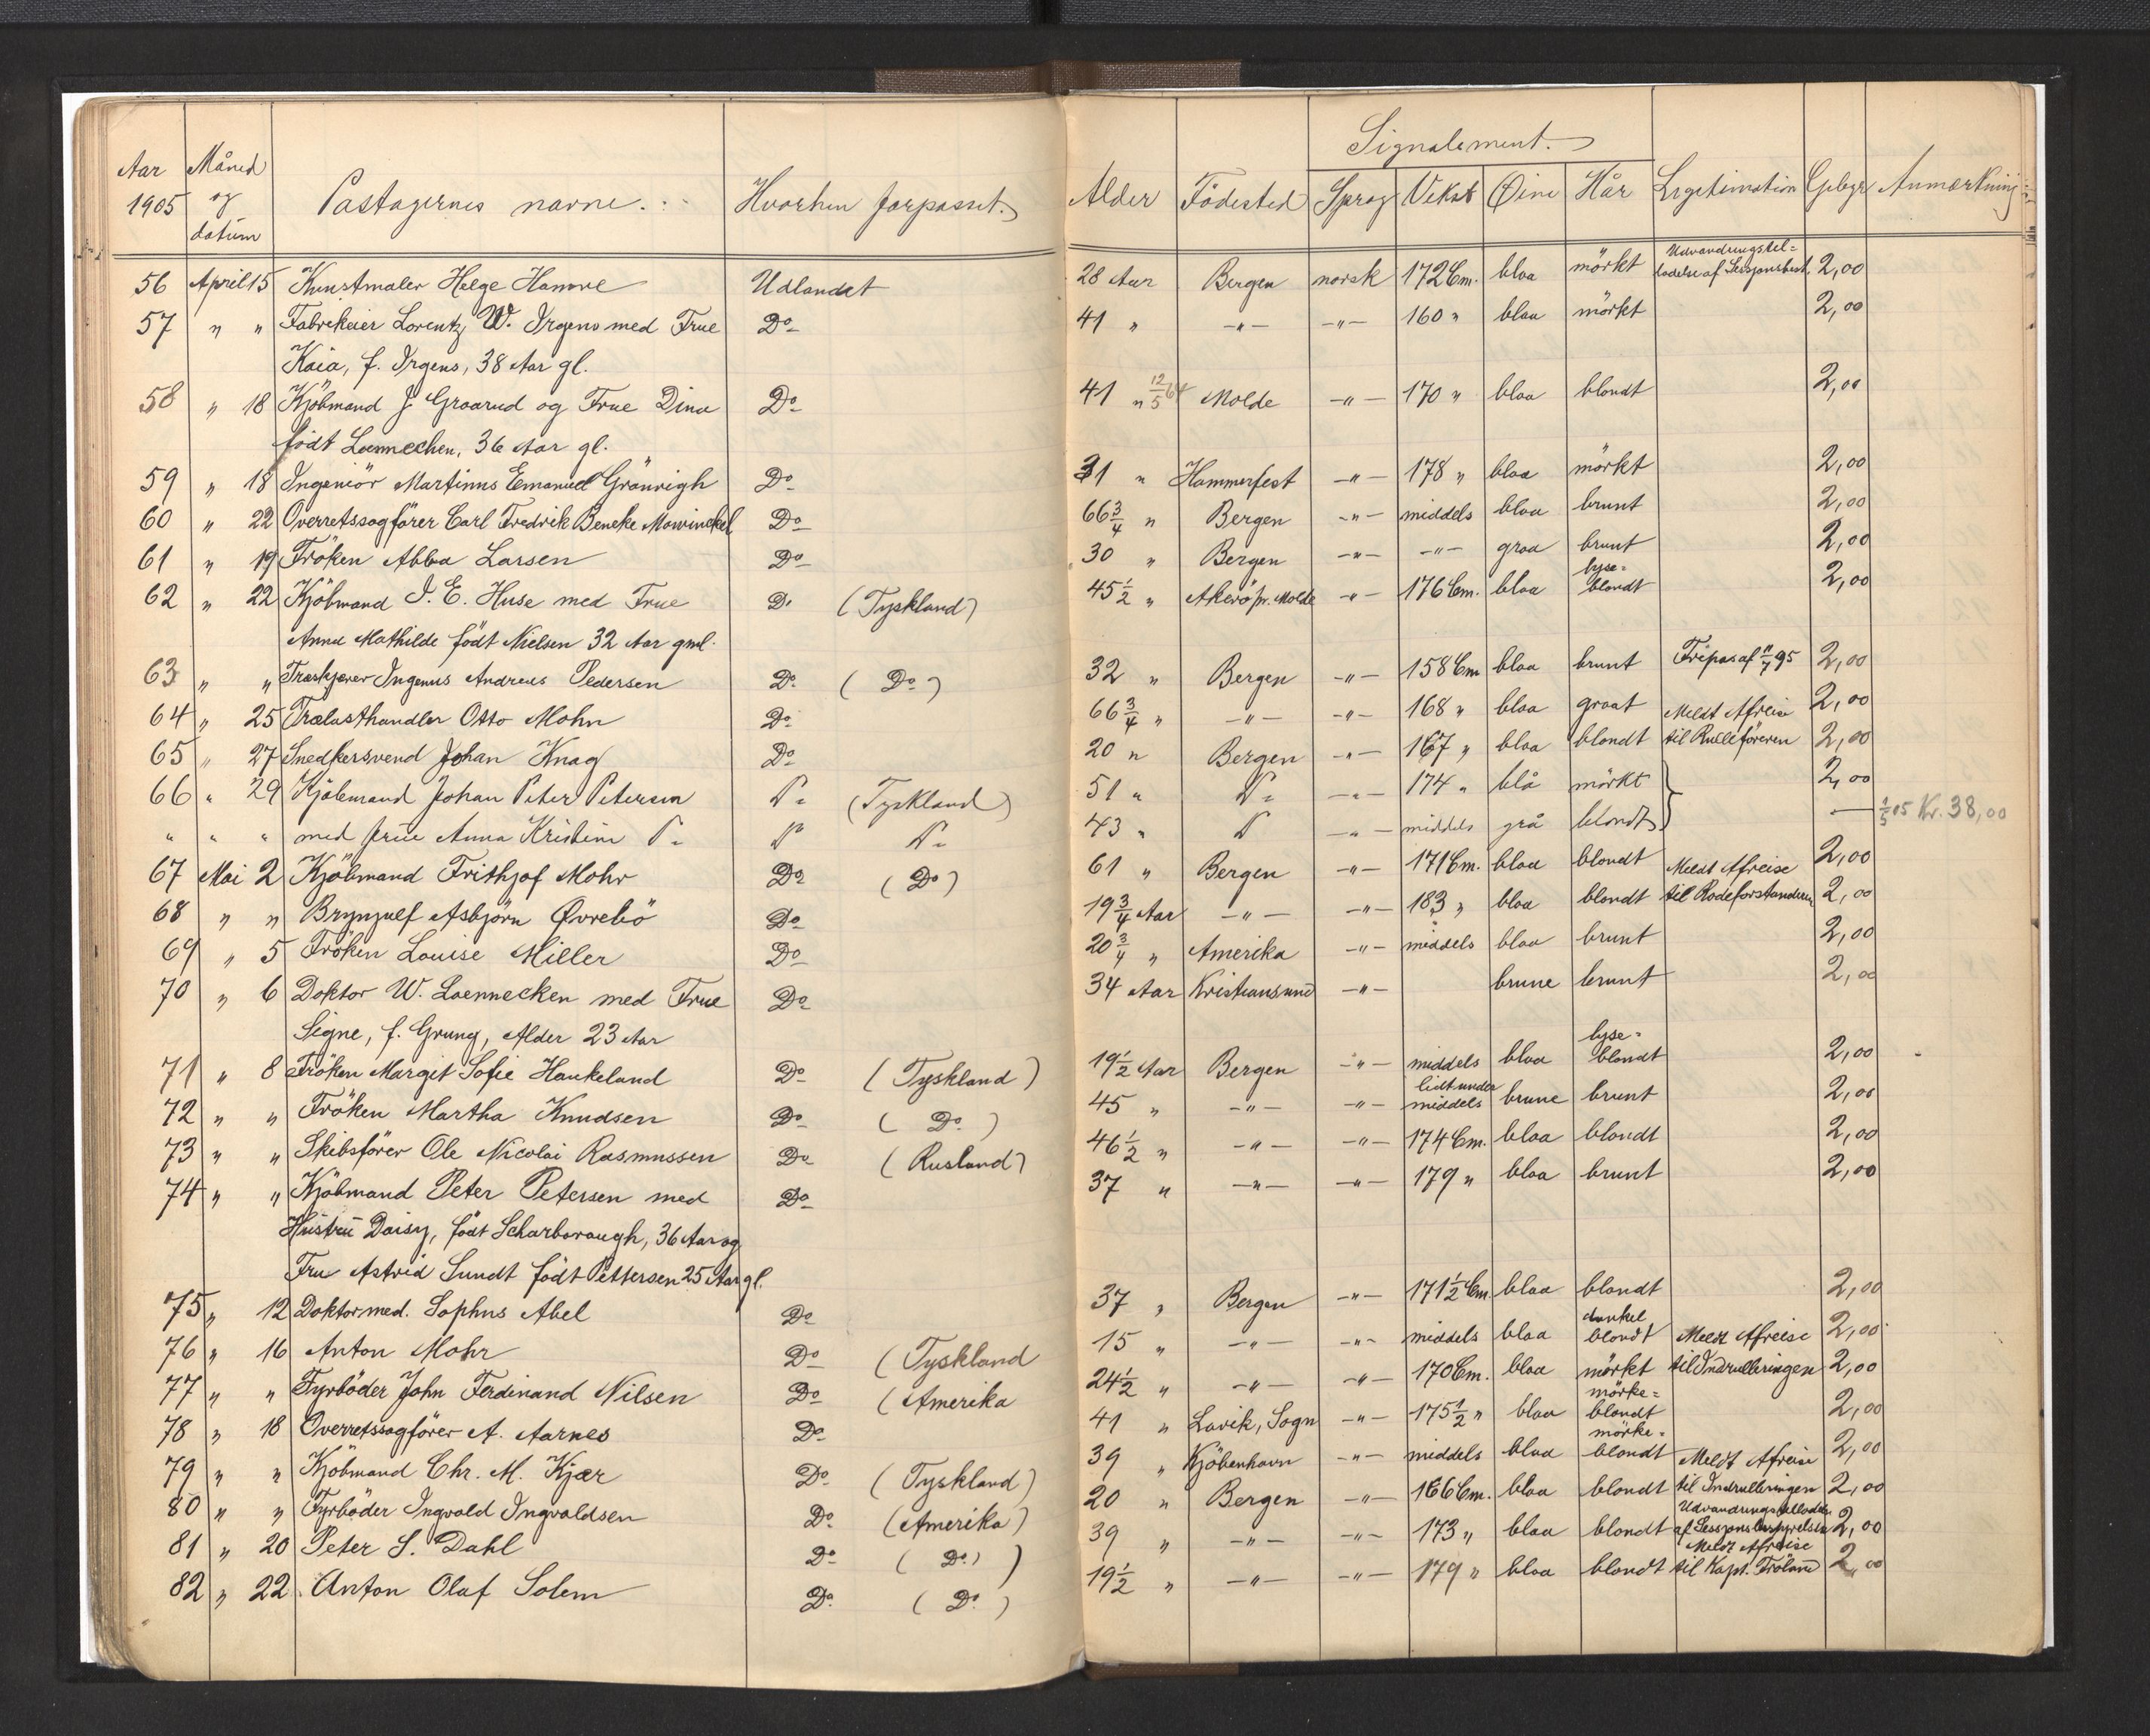 Aar 1905 Måned og datum Pastagernes navne. Hvorhen forpasset. Alder Födested Signalement. Sprog Vekst Øine Hår Legitimation Gebyr Anmærkning
56 April 15 Kunstmaler Helge Hamre Udlandet 28 Aar Bergen norsk 172 Cm. blaa mörkt Udvandringstilladelse af Sessionsbest. 2,00
57 " " Fabrikeier Lorentz W. Irgens med Frue Do 41 " -"- -"- 160 " blaa mörkt 2,00
Kaia, f. Irgens, 38 Aar gl.
58 " 18 Kjöbmand J Graarud og Frue Dina Do 41 " 12/5 64 Molde -"- 170 " blaa blondt 2,00
født Lœnnechen, 36 Aar gl.
59 " 18 Ingeniör Martinus Emanuel Grönvigh Do 31 " Hammerfest -"- 178 " blaa mörkt 2,00
60 " 22 Overretssagförer Carl Fredrik Beneke Mowinckel Do 66 3/4 " Bergen -"- middels blaa brunt 2,00
61 " 19 Fröken Abba Larsen Do 30 " Bergen -"- -"- graa brunt 2,00
62 " 22 Kjöbmand I. E. Huse med Frue Do (Tyskland) 45 1/2 " Akerö pr. Molde -"- 176 Cm. blaa lyse= blondt 2,00
Anna Mathilde født Nielsen 32 Aar gml.
63 " " Træskjærer Ingenus Andreas Pedersen Do (Do) 32 " Bergen -"- 158 Cm blaa brunt Fripas af 11/7 95 2,00
64 " 25 Trælasthandler Otto Mohn Do 66 3/4 " -"- -"- 168 " blaa graat 2,00
65 " 27 Snedkersvend Johan Knag Do 20 " Bergen -"- 167 " blaa blondt Meldt Afreise til Rulleföreren 2,00
66 " 29 Kjöbmand Johan Peter Petersen Do (Tyskland) 51 " Do -"- 174 " blå mörkt 2,00
" " " med frue Anna Kristine Do Do Do 43 " Do -"- middels grå blondt — 1/5 05 Kr. 38,00
67 Mai 2 Kjöbmand Frithjof Mohr Do (Do) 61 " Bergen -"- 171 Cm. blaa blondt 2,00
68 " " Brynjulf Asbjörn Øvrebö Do 19 3/4 Aar -"- -"- 183 " blaa blondt Meldt Afreise til Rodeforstanderen 2,00
69 " 5 Fröken Louise Miller Do 20 3/4 " Amerika -"- middels blaa brunt 2,00
70 " 6 Doktor W. Loennecken med Frue Do 34 Aar Kristiansund -"- brune brunt 2,00
Signe, f. Grung, Alder 23 Aar
71 " 8 Fröken Margit Sofie Haukeland Do (Tyskland) 19 1/2 Aar Bergen -"- middels blaa lyse= blondt 2,00
72 " " Fröken Martha Knudsen Do (Do) 45 " -"- -"- lidt under middels brune brunt 2,00
73 " " Skibsförer Ole Nicolai Rasmussen Do (Rusland) 46 1/2 " -"- -"- 174 Cm. blaa blondt 2,00
74 " " Kjöbmand Peter Petersen med Do 37 " -"- -"- 179 " blaa brunt 2,00
Hustru Daisy, født Scharborough, 36 Aar og
Fru Astrid Sundt født Pettersen 25 Aar gl.
75 " 12 Doktor med. Sophus Abel Do 37 " Bergen -"- 171 1/2 Cm. blaa blondt 2,00
76 " 16 Anton Mohr Do (Tyskland 15 " -"- -"- middels blaa dunkel blondt 2,00
77 " " Fyrböder John Ferdinand Nilsen Do (Amerika 24 1/2 " -"- -"- 170 Cm. blaa mörkt Meldt Afreise til Indrulleringen 2,00
78 " 18 Overretssagförer A. Aarnes Do 41 " Lavik, Sogn -"- 175 1/2 " blaa mörke= blondt 2,00
79 " " Kjöbmand Chr. M. Kjær Do (Tyskland) 39 " Kjöbenhavn -"- middels blaa mörke= blondt 2,00
80 " " Fyrböder Ingvald Ingvaldsen Do (Amerika) 20 " Bergen -"- 166 Cm. blaa blondt Meldt Afreise til Indrulleringen 2,00
81 " 20 Peter S. Dahl Do (Do) 39 " -"- -"- 173 " blaa blondt Udvandringstilladelse af Sessionsbestyrelsen 2,00
82 " 22 Anton Olaf Solem Do (Do) 19 1/2 " -"- -"- 179 " blaa blondt Meldt Afreise til Kapt. Fröland 2,00